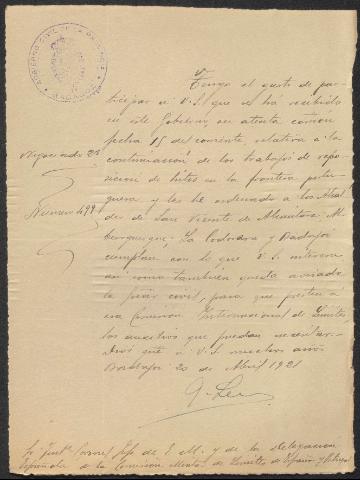 GOBIERNO CIVIL DE LA PROVINCIA
BADAJOZ
Tengo el gusto de par-
ticipar a V.S. que se ha recibido
en este Gobierno, su atenta comon
fecha 15 del corriente, relativa a la
continuación de los trabajos de repo-
sicion de hitos en la frontera portu-
guesa y les he ordenado a los Alcal-
des de San Vicente de Alcántara, Al-
burquerque, La Codosera y Badajoz
cumplan con lo que V.S. interesa
asi como tambien queda avisada
la fuerza civil, para que presten a
esa Comision Internacional de Limites
los auxilios que puedan necesitar.
Dios gue a V.S. muchos años
Badajoz 20 de Abril 1921
Negociado 2º
Numero 499
Sr. Coronel Jefe de E. M. y de la Delegacion
Española de la Comisión de Limites de España y Portugal